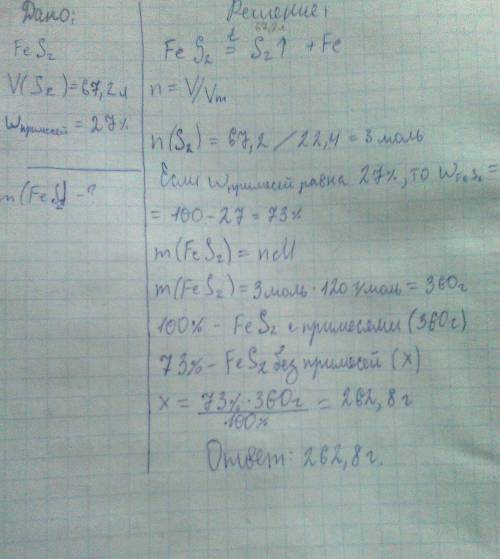 Дано:
FeS₂
V(S₂)=67,2л
wпримесей = 27%
m(FeS₂) - ?
Решение:
67,2л
FeS₂ =t S₂↑ + Fe
n = V/Vm
n(S₂) = 67,2 / 22,4 = 3 моль
Если wпримесей равна 27%, то wFeS₂ =
= 100 - 27 = 73%
m(FeS₂) = nM
m(FeS₂) = 3моль · 120 г/моль = 360г
100% - FeS₂ с примесями (360г)
73% - FeS₂ без примесей (x)
x = 73% · 360г / 100% = 262,8 г
Ответ: 262,8г.